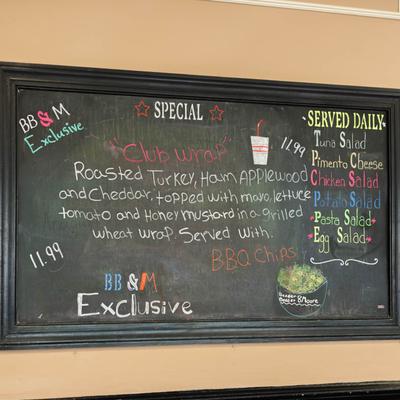 BB & M
Exclusive
SPECIAL
"Club Wrap"
11.99
Roasted Turkey, Ham Applewood
and Cheddar, topped with mayo, lettuce
tomato and Honey mustard in a grilled
wheat wrap. Served with.
BBQ Chips
11.99
BB & M
Exclusive
SERVED DAILY
Tuna Salad
Pimento Cheese
Chicken Salad
Potato Salad
Pasta Salad
Egg Salad
Beader B Moore